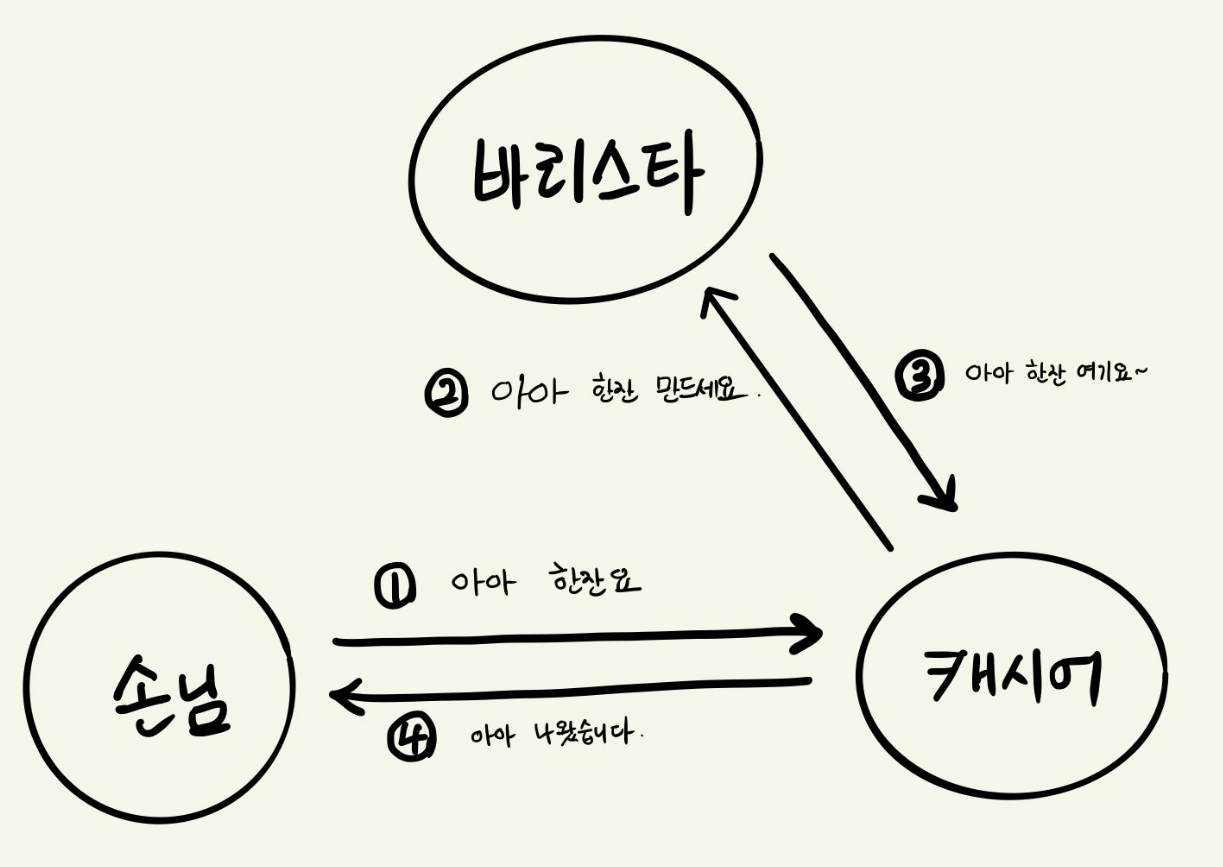 바리스타
② 아아 한잔 만드세요.
③ 아아 한잔 여기요~
① 아아 한잔요
손님
캐시어
④ 아아 나왔습니다.